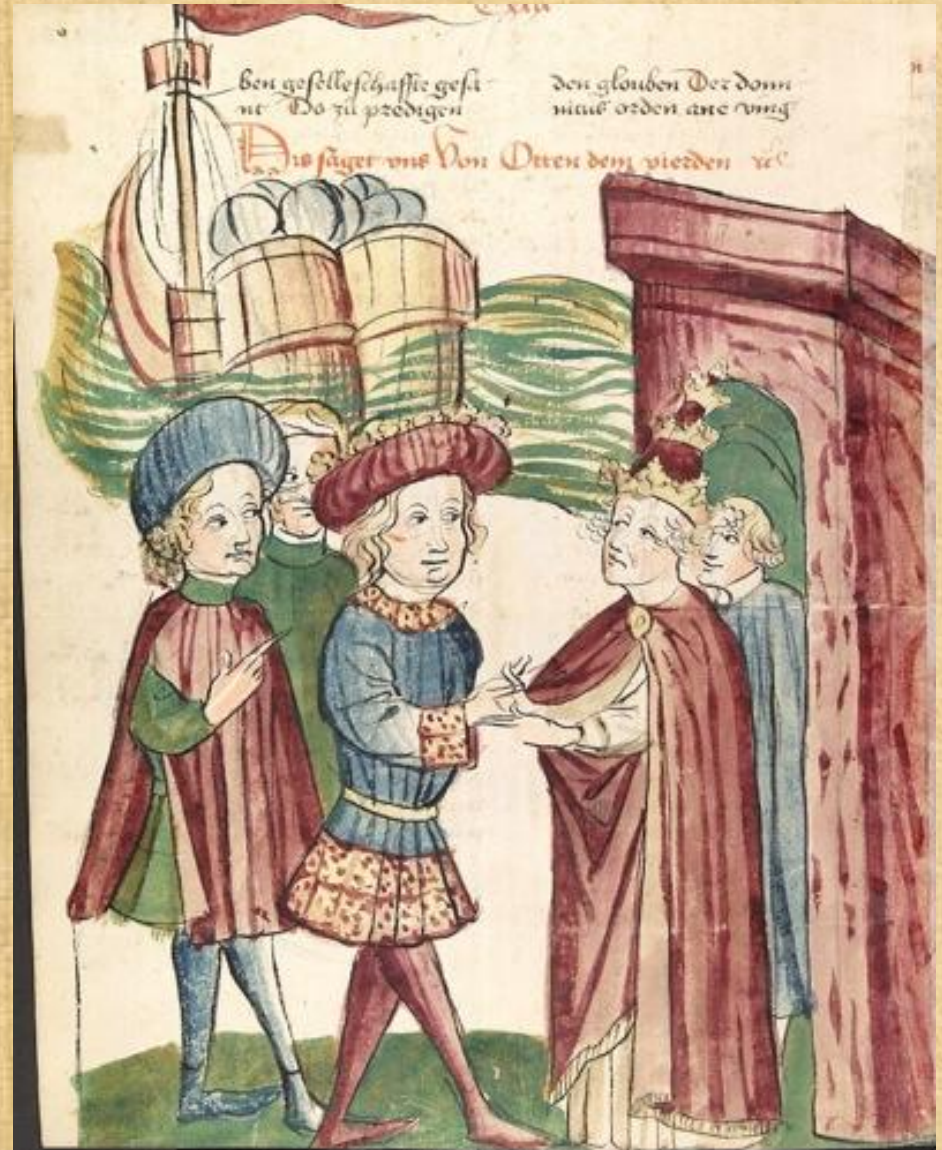 ben geselleschafft gesa
nt Do zu predigen
den glouben Der domi
nicus orden ane ving
Dis saget uns von Otten dem vierden